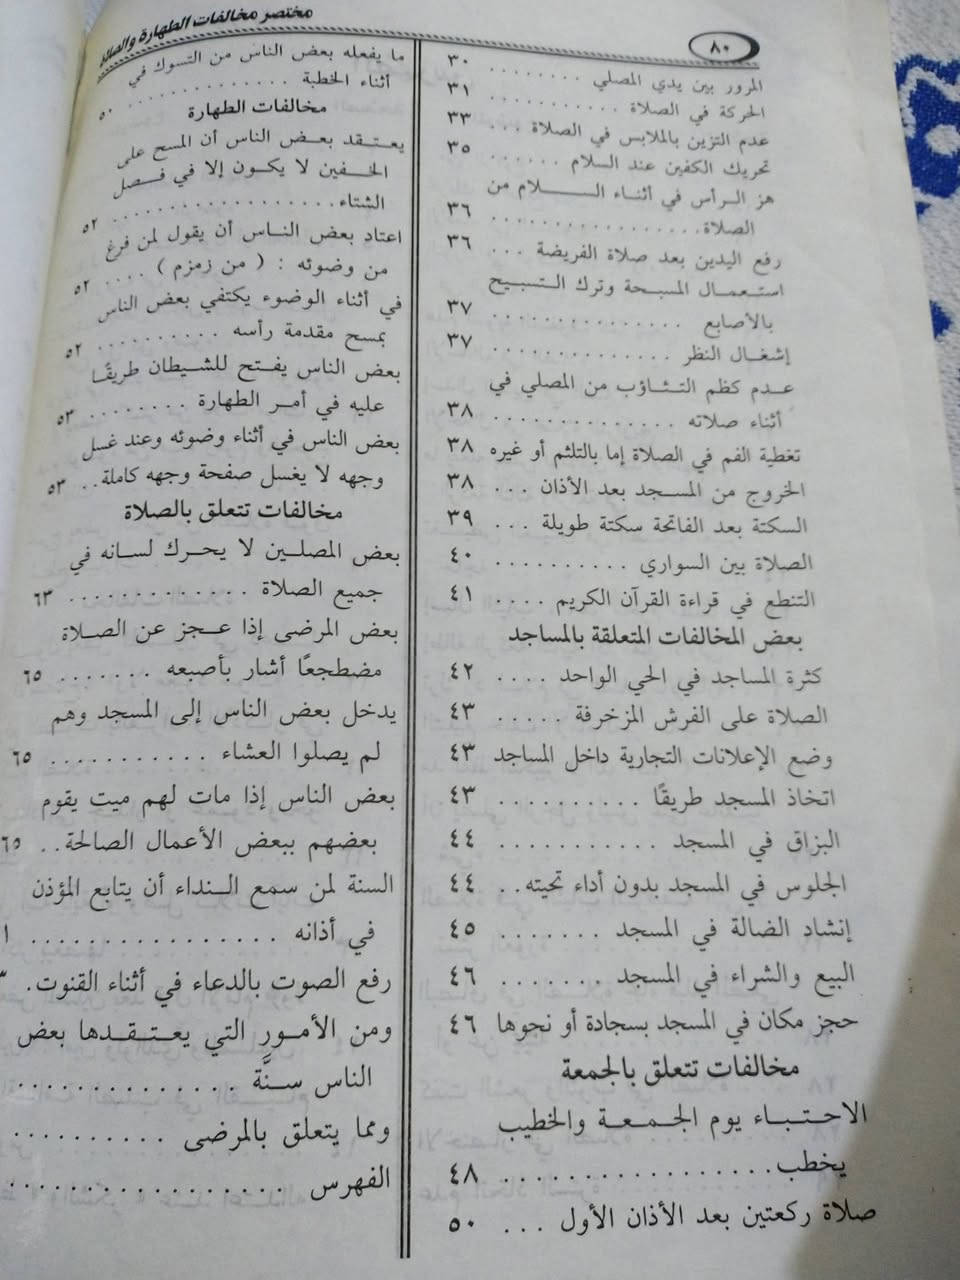 ٨٠
مختصر مخالفات الطهارة والصلاة
المرور بين يدي المصلي ........ ٣٠
الحركة في الصلاة ........... ٣١
عدم التزين بالملابس في الصلاة ... ٣٣
تحريك الكفين عند السلام ....... ٣٥
هز الرأس في أثناء السلام من
الصلاة ................ ٣٦
رفع اليدين بعد صلاة الفريضة ... ٣٦
استعمال المسبحة وترك التسبيح
بالأصابع ............... ٣٧
إشغال النظر ............. ٣٧
عدم كظم التثاؤب من المصلي في
أثناء صلاته ............. ٣٨
تغطية الفم في الصلاة إما بالتلثم أو غيره ٣٨
الخروج من المسجد بعد الأذان ... ٣٨
السكتة بعد الفاتحة سكتة طويلة ... ٣٩
الصلاة بين السواري .......... ٤٠
التنطع في قراءة القرآن الكريم .... ٤١
بعض المخالفات المتعلقة بالمساجد
كثرة المساجد في الحي الواحد .... ٤٢
الصلاة على الفرش المزخرفة ..... ٤٣
وضع الإعلانات التجارية داخل المساجد ٤٣
اتخاذ المسجد طريقًا .......... ٤٣
البزاق في المسجد ........... ٤٤
الجلوس في المسجد بدون أداء تحيته.. ٤٤
إنشاد الضالة في المسجد ....... ٤٥
البيع والشراء في المسجد ....... ٤٦
حجز مكان في المسجد بسجادة أو نحوها ٤٦
مخالفات تتعلق بالجمعة
الاحتباء يوم الجمعة والخطيب
يخطب................. ٤٨
صلاة ركعتين بعد الأذان الأول ... ٥٠
ما يفعله بعض الناس من التسوك في
أثناء الخطبة ............. ٥٠
مخالفات الطهارة
يعتقد بعض الناس أن المسح على
الخفين لا يكون إلا في فصل
الشتاء................. ٥٢
اعتاد بعض الناس أن يقول لمن فرغ
من وضوئه : ( من زمزم ) .... ٥٢
في أثناء الوضوء يكتفي بعض الناس
بمسح مقدمة رأسه .......... ٥٢
بعض الناس يفتح للشيطان طريقًا
عليه في أمر الطهارة ........ ٥٣
بعض الناس في أثناء وضوئه وعند غسل
وجهه لا يغسل صفحة وجهه كاملة.. ٥٣
مخالفات تتعلق بالصلاة
بعض المصلين لا يحرك لسانه في
جميع الصلاة ............ ٦٣
بعض المرضى إذا عجز عن الصلاة
مضطجعًا أشار بأصبعه ....... ٦٥
يدخل بعض الناس إلى المسجد وهم
لم يصلوا العشاء ........... ٦٥
بعض الناس إذا مات لهم ميت يقوم
بعضهم ببعض الأعمال الصالحة.. ٦٥
السنة لمن سمع النداء أن يتابع المؤذن
في أذانه ................
رفع الصوت بالدعاء في أثناء القنوت.
ومن الأمور التي يعتقدها بعض
الناس سنَّة ..............
ومما يتعلق بالمرضى ..........
الفهرس .................